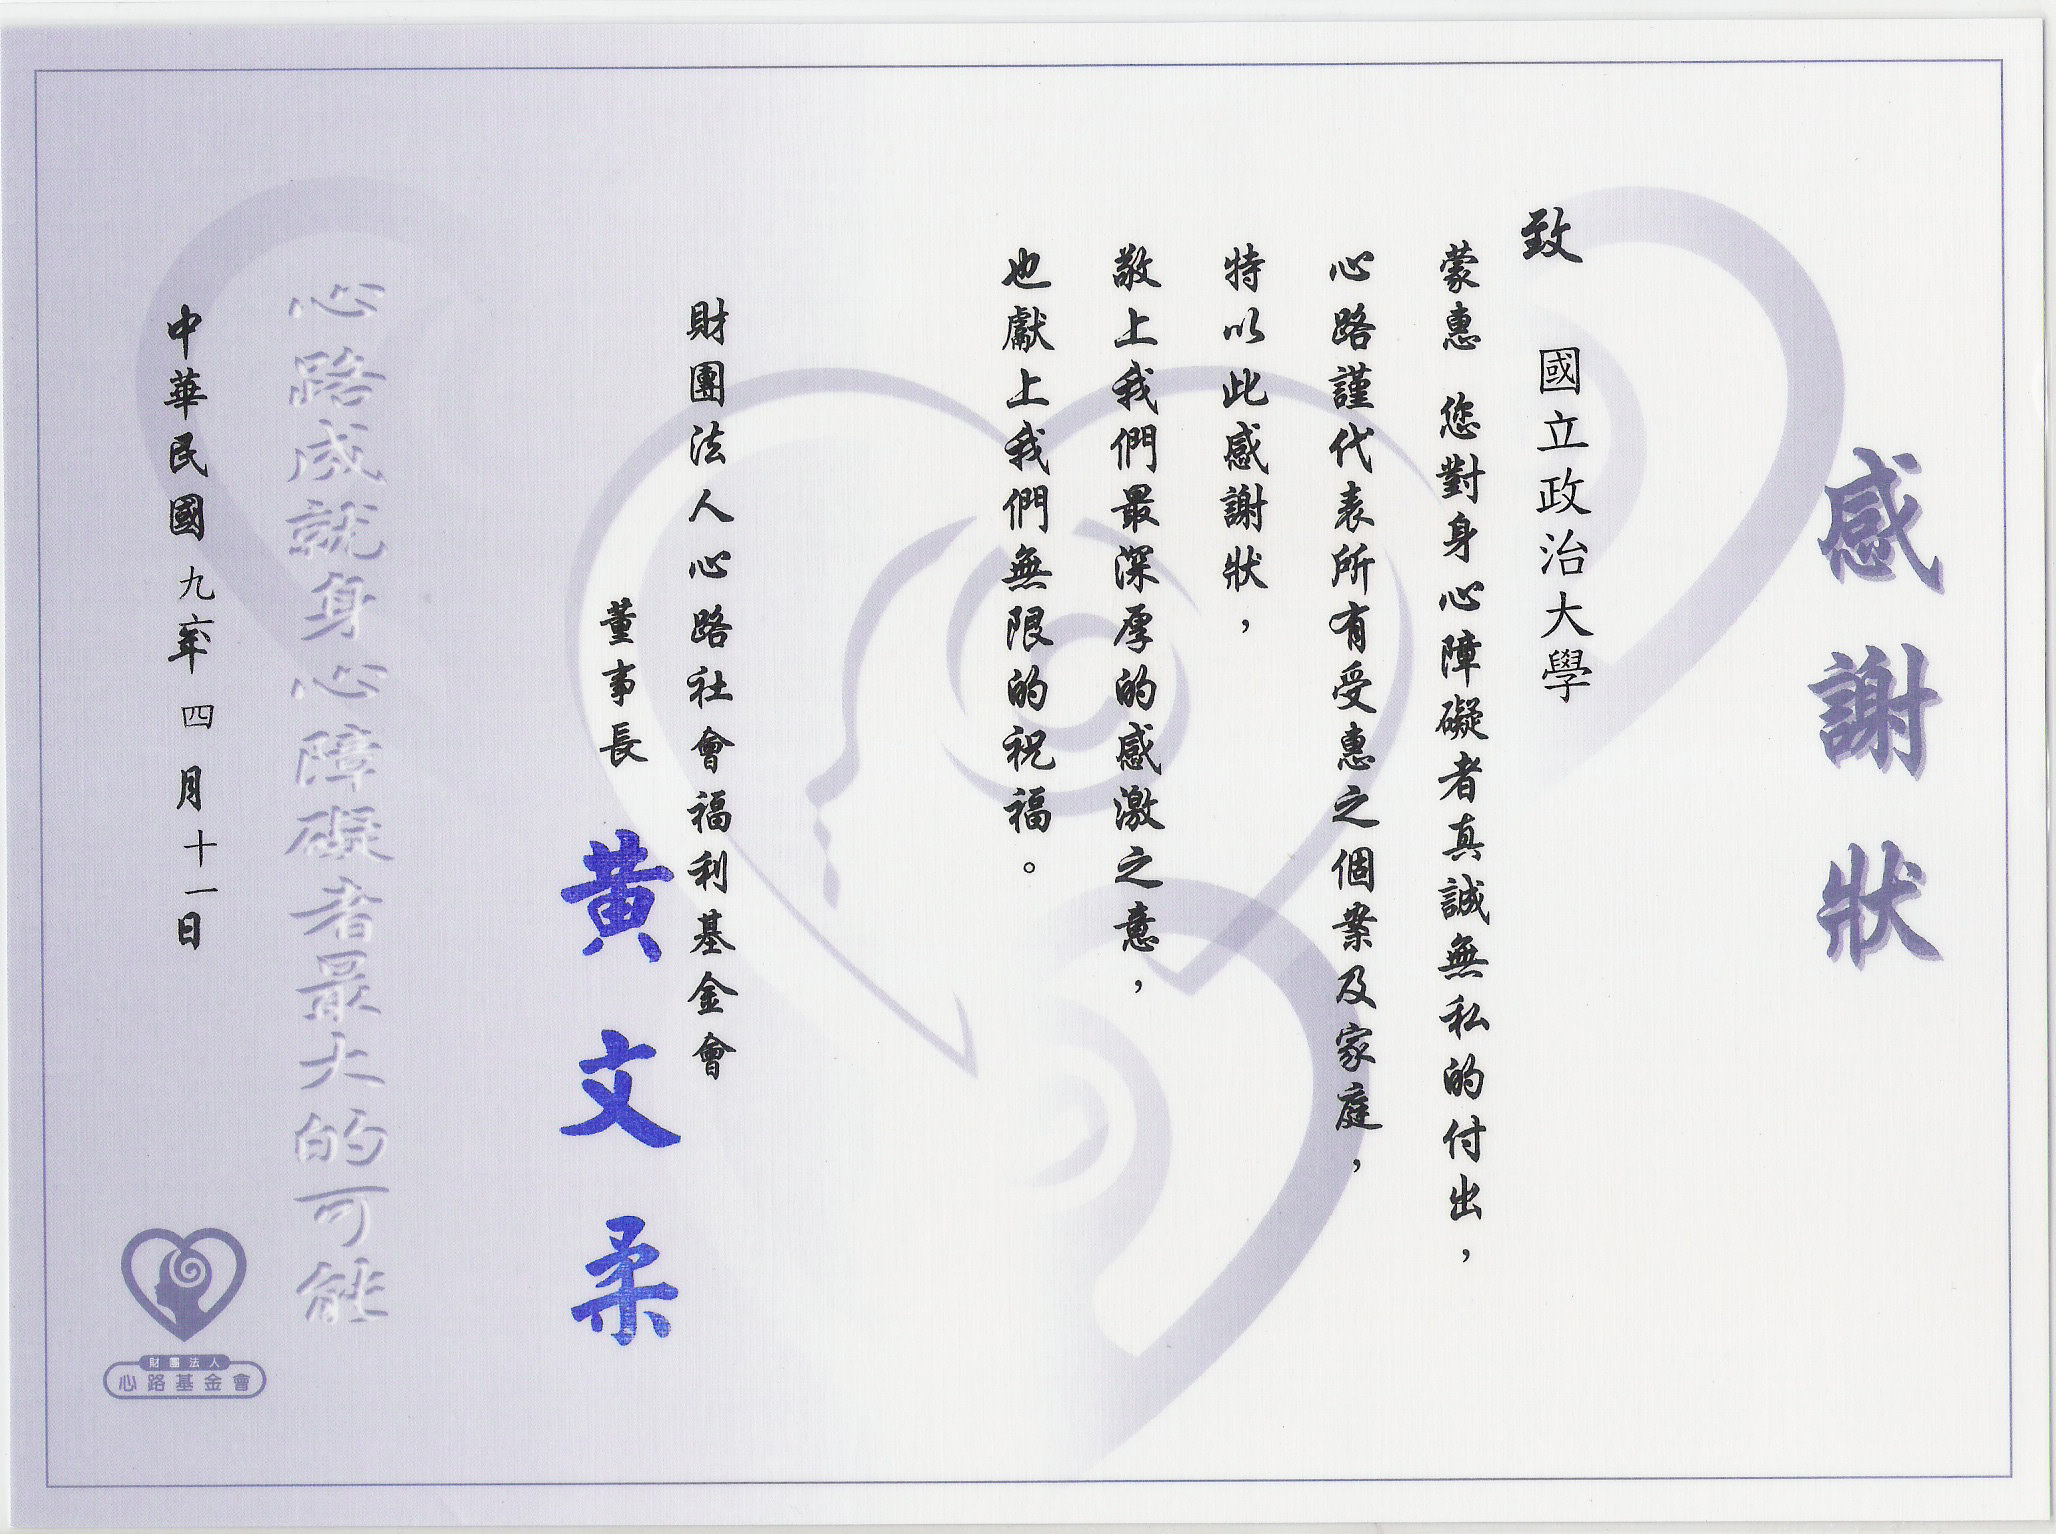 感謝狀
致 國立政治大學
蒙惠 您對身心障礙者真誠無私的付出，
心路謹代表所有受惠之個案及家庭，
特以此感謝狀，
敬上我們最深厚的感激之意，
也獻上我們無限的祝福。
財團法人心路社會福利基金會
董事長 黃文柔
心路成就身心障礙者最大的可能
中華民國九六年四月十一日
財團法人
心路基金會